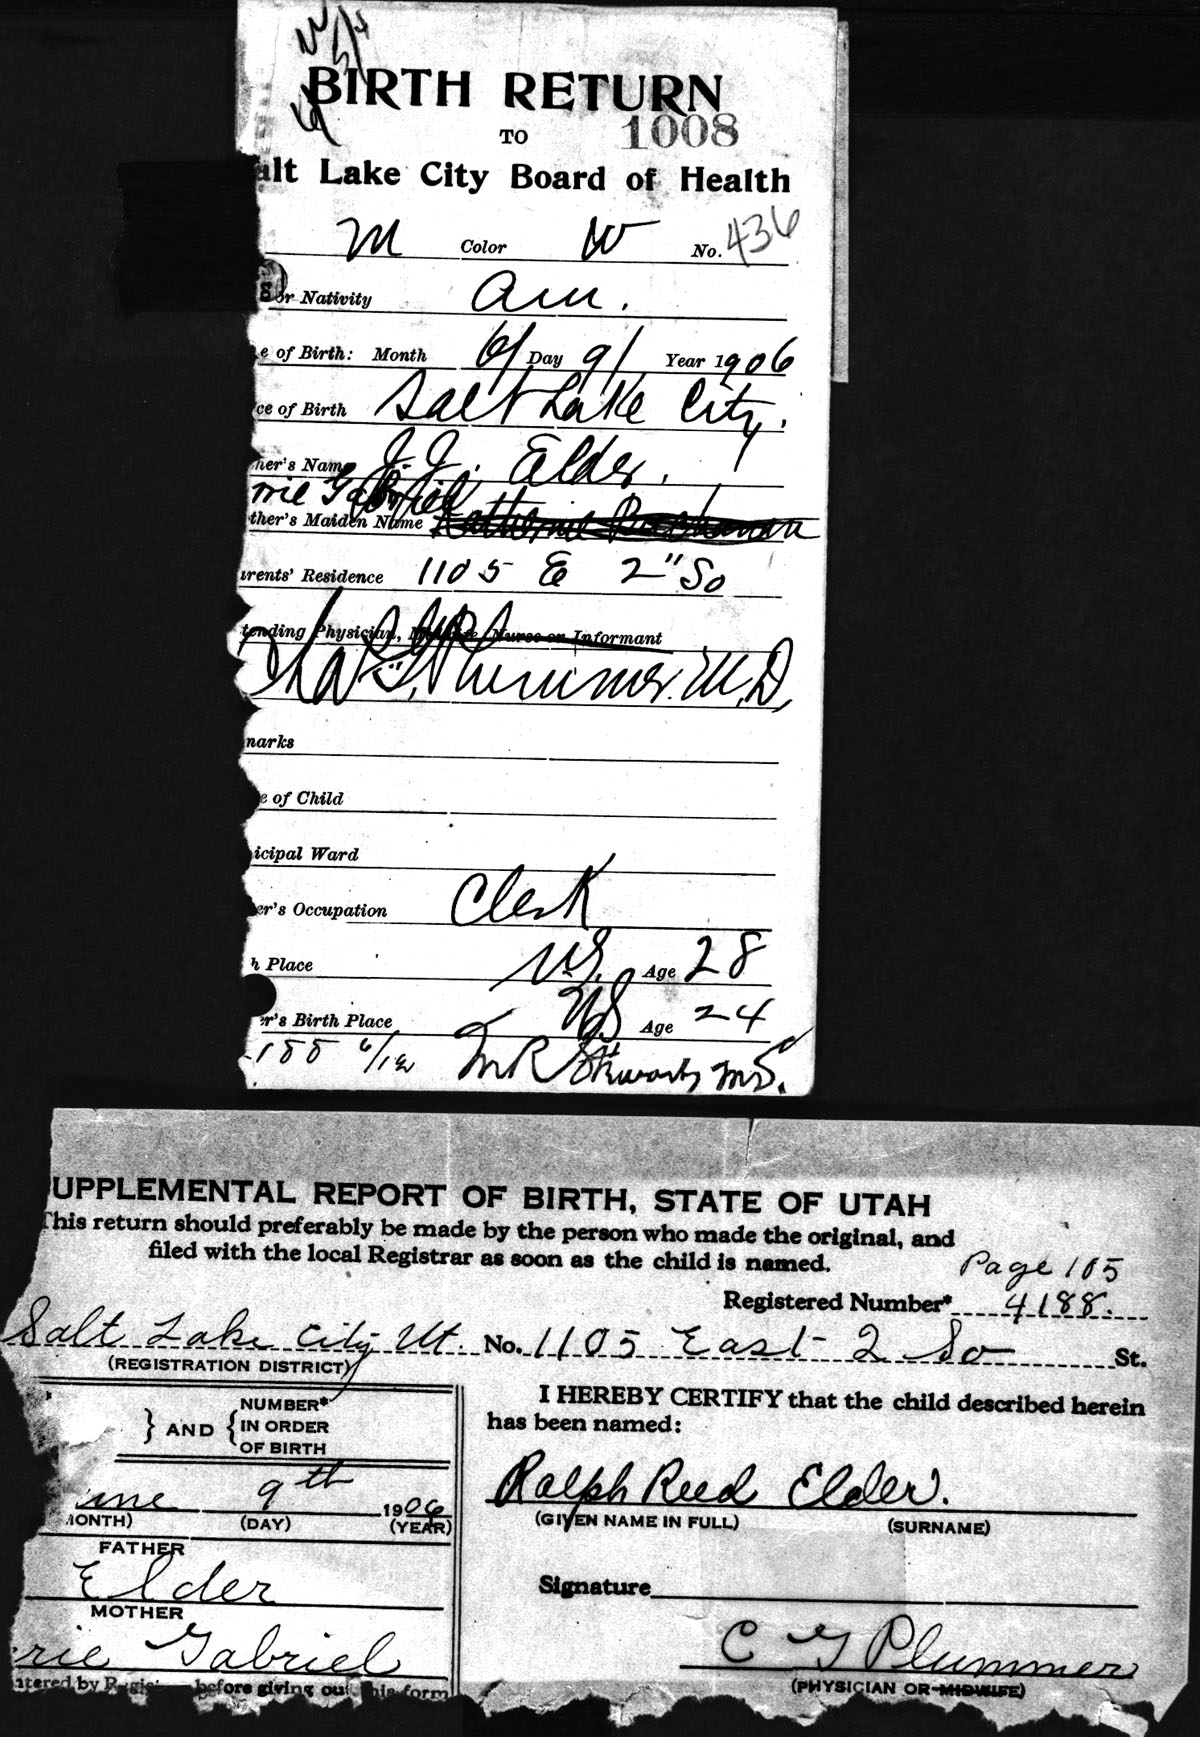 BIRTH RETURN
TO 1008
alt Lake City Board of Health
M Color W No. 436
or Nativity Am.
e of Birth: Month 6/ Day 9/ Year 1906
ce of Birth Salt Lake City.
her's Name J. J. Elder.
rrie Gabriel
ther's Maiden Name Katherine
arents' Residence 1105 E 2" So
tending Physician, Nurse or Informant
Chas G. Plummer. M.D.
marks
e of Child
icipal Ward
er's Occupation Clerk
h Place U.S. Age 28
er's Birth Place U.S Age 24
188 6/12 T M R Stewart M.D.
UPPLEMENTAL REPORT OF BIRTH, STATE OF UTAH
This return should preferably be made by the person who made the original, and
filed with the local Registrar as soon as the child is named.
Page 105
Registered Number* 4188.
Salt Lake City Ut. No. 1105 East 2 So St.
(REGISTRATION DISTRICT)
I HEREBY CERTIFY that the child described herein
has been named:
} AND { NUMBER*
IN ORDER
OF BIRTH
une 9th 1906
MONTH) (DAY) (YEAR)
Ralph Reed Elder.
(GIVEN NAME IN FULL) (SURNAME)
FATHER
Elder
Signature
MOTHER
rrie Gabriel
C G Plummer
(PHYSICIAN OR MIDWIFE)
ntered by before giving out this form